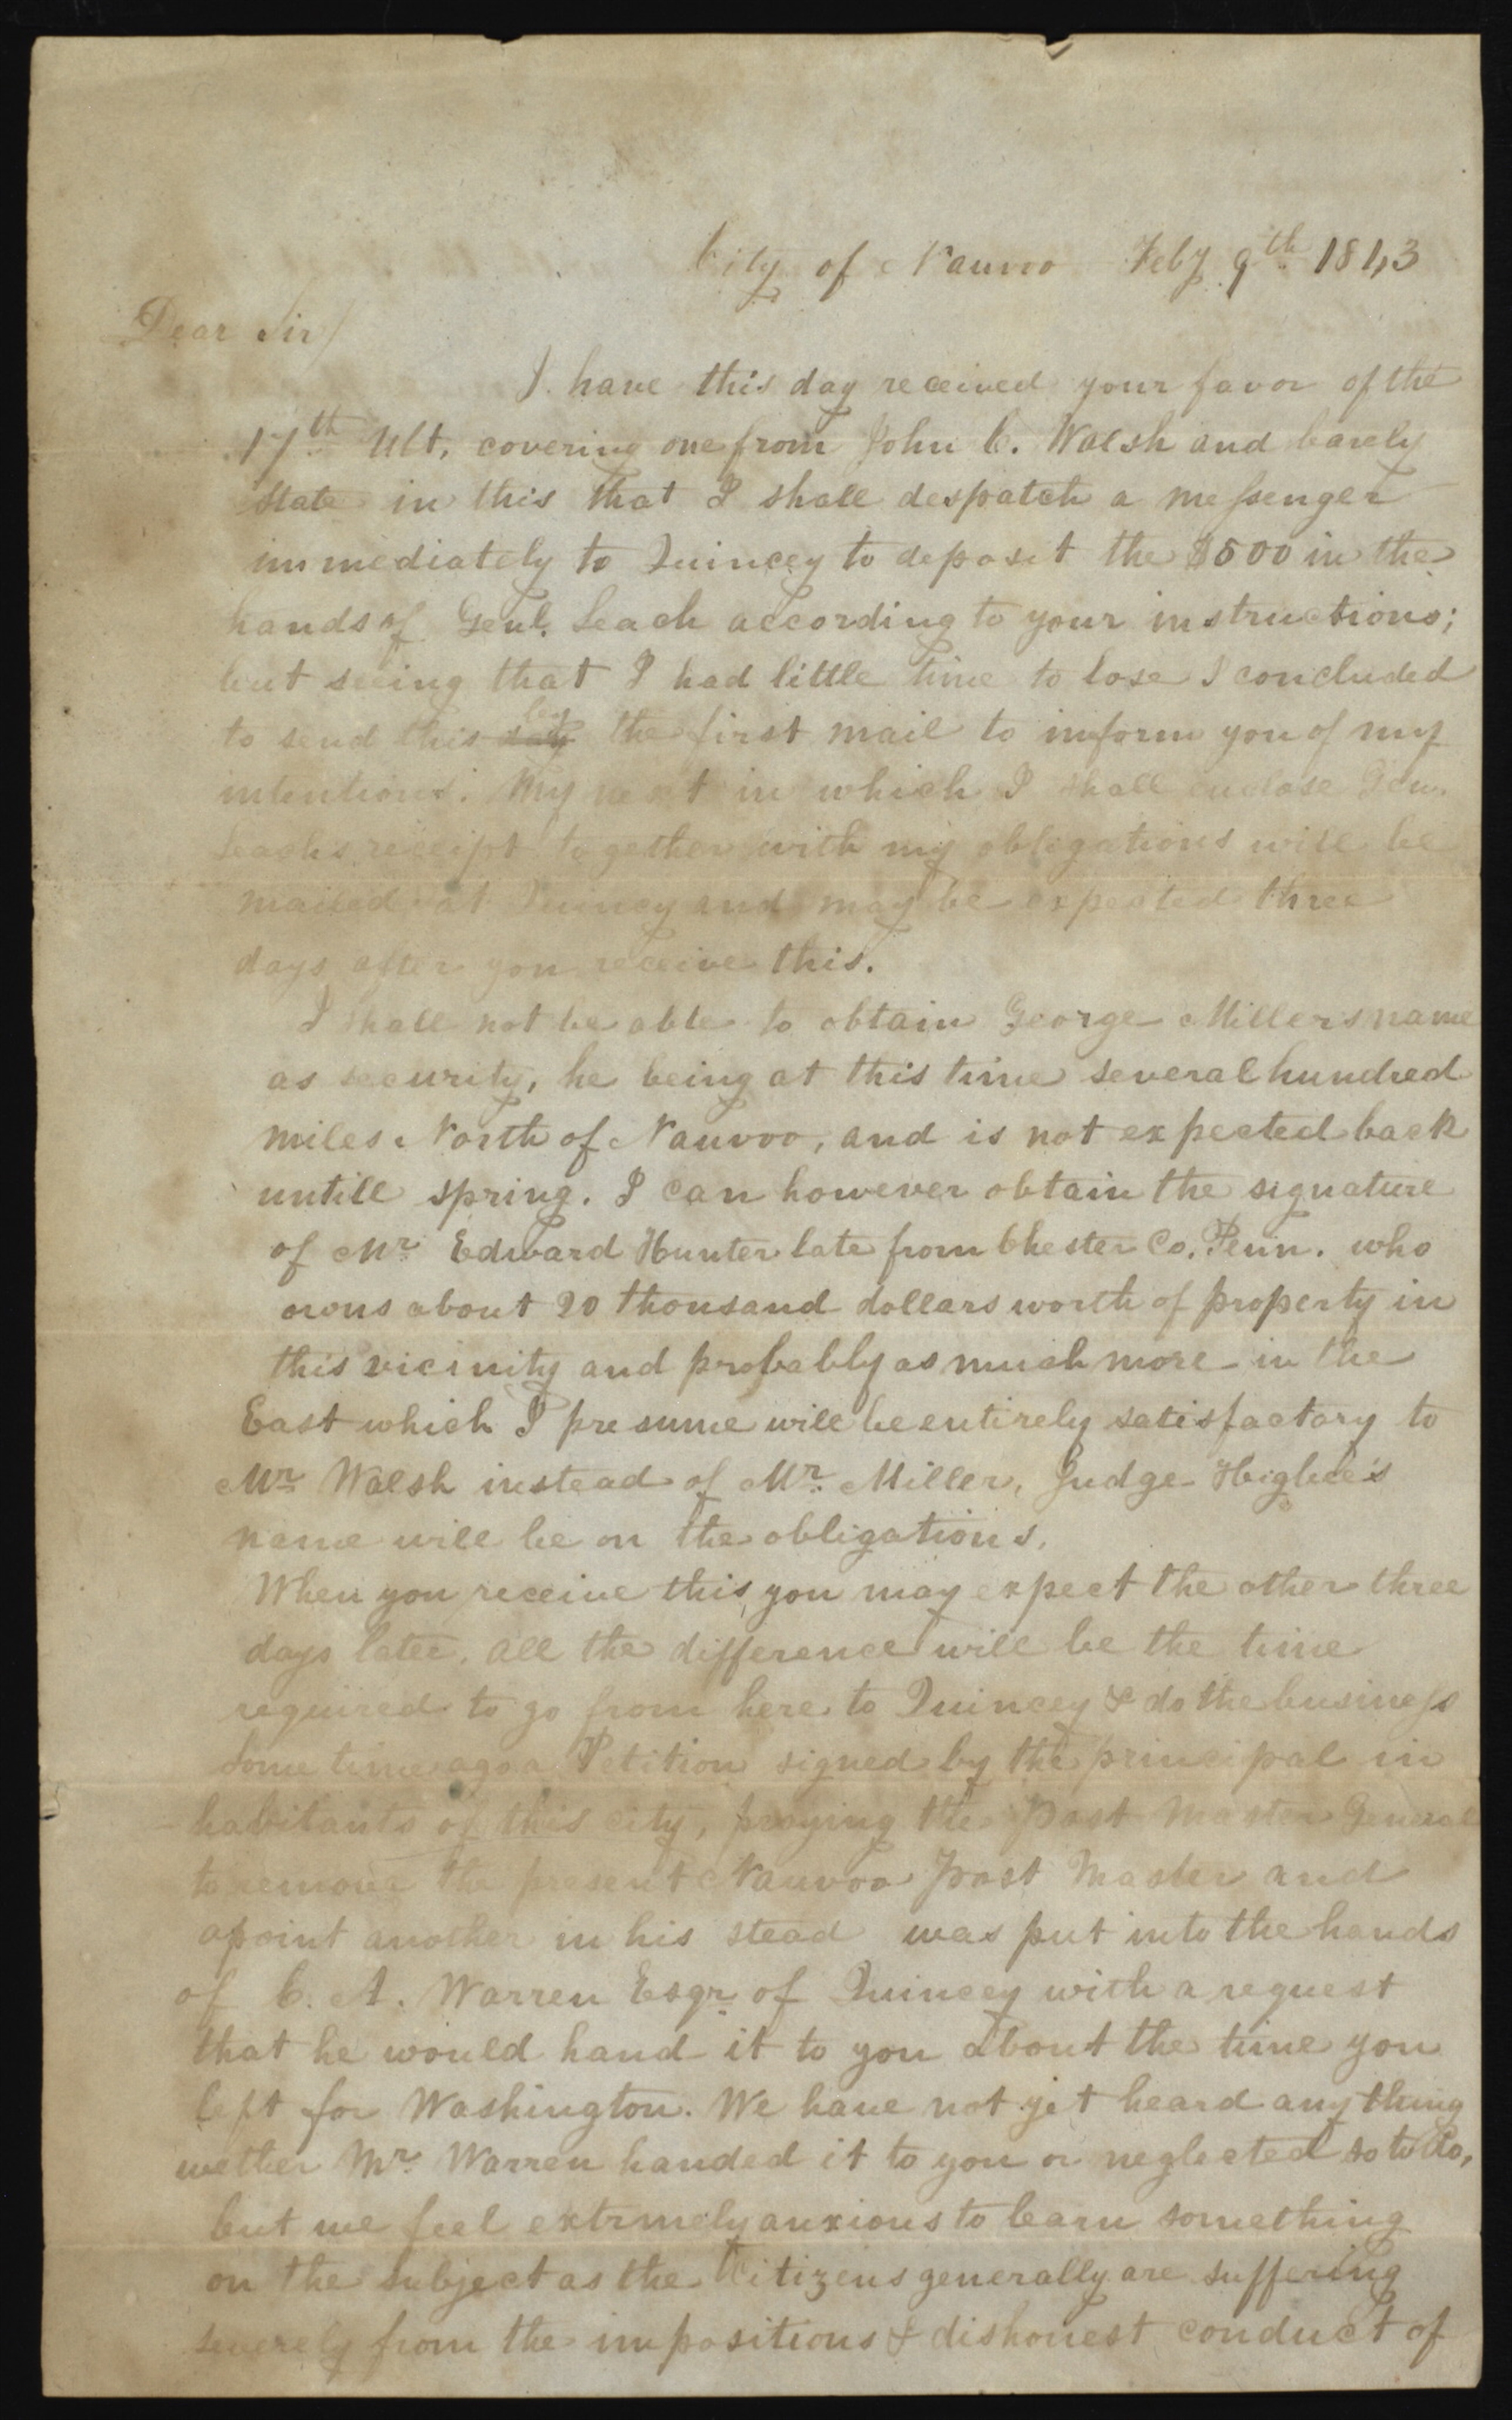 City of Nauvoo Feby 9th 1843
Dear Sir/
I have this day received your favor of the
17th Ult, covering one from John C. Walsh and barely
state in this that I shall despatch a messenger
immediately to Quincey to deposit the $500 in the
hands of Genl. Leach according to your instructions;
but seeing that I had little time to lose I concluded
to send this by the first mail to inform you of my
intentions. My next in which I shall enclose Gen.
Leachs receipt together with my obligations will be
mailed at Quincy and may be expected three
days after you receive this.
I shall not be able to obtain George Millers name
as security, he being at this time several hundred
miles North of Nauvoo, and is not expected back
untill spring. I can however obtain the signature
of Mr. Edward Hunter late from Chester Co. Penn. who
owns about 20 thousand dollars worth of property in
this vicinity and probably as much more in the
East which I presume will be entirely satisfactory to
Mr. Walsh instead of Mr. Miller, Judge Higbee's
name will be on the obligations.
When you receive this, you may expect the other three
days later, all the difference will be the time
required to go from here to Quincey & do the business
Some time ago a Petition signed by the principal in
habitants of this city, praying the Post Master General
to remove the present Nauvoo Post Master and
apoint another in his stead was put into the hands
of C. A. Warren Esqr. of Quincey with a request
that he would hand it to you about the time you
left for Washington. We have not yet heard any thing
wether Mr. Warren handed it to you or neglected so to do,
but we feel extrmely anxious to learn something
on the subject as the Citizens generally are suffering
severely from the impositions & dishonest conduct of